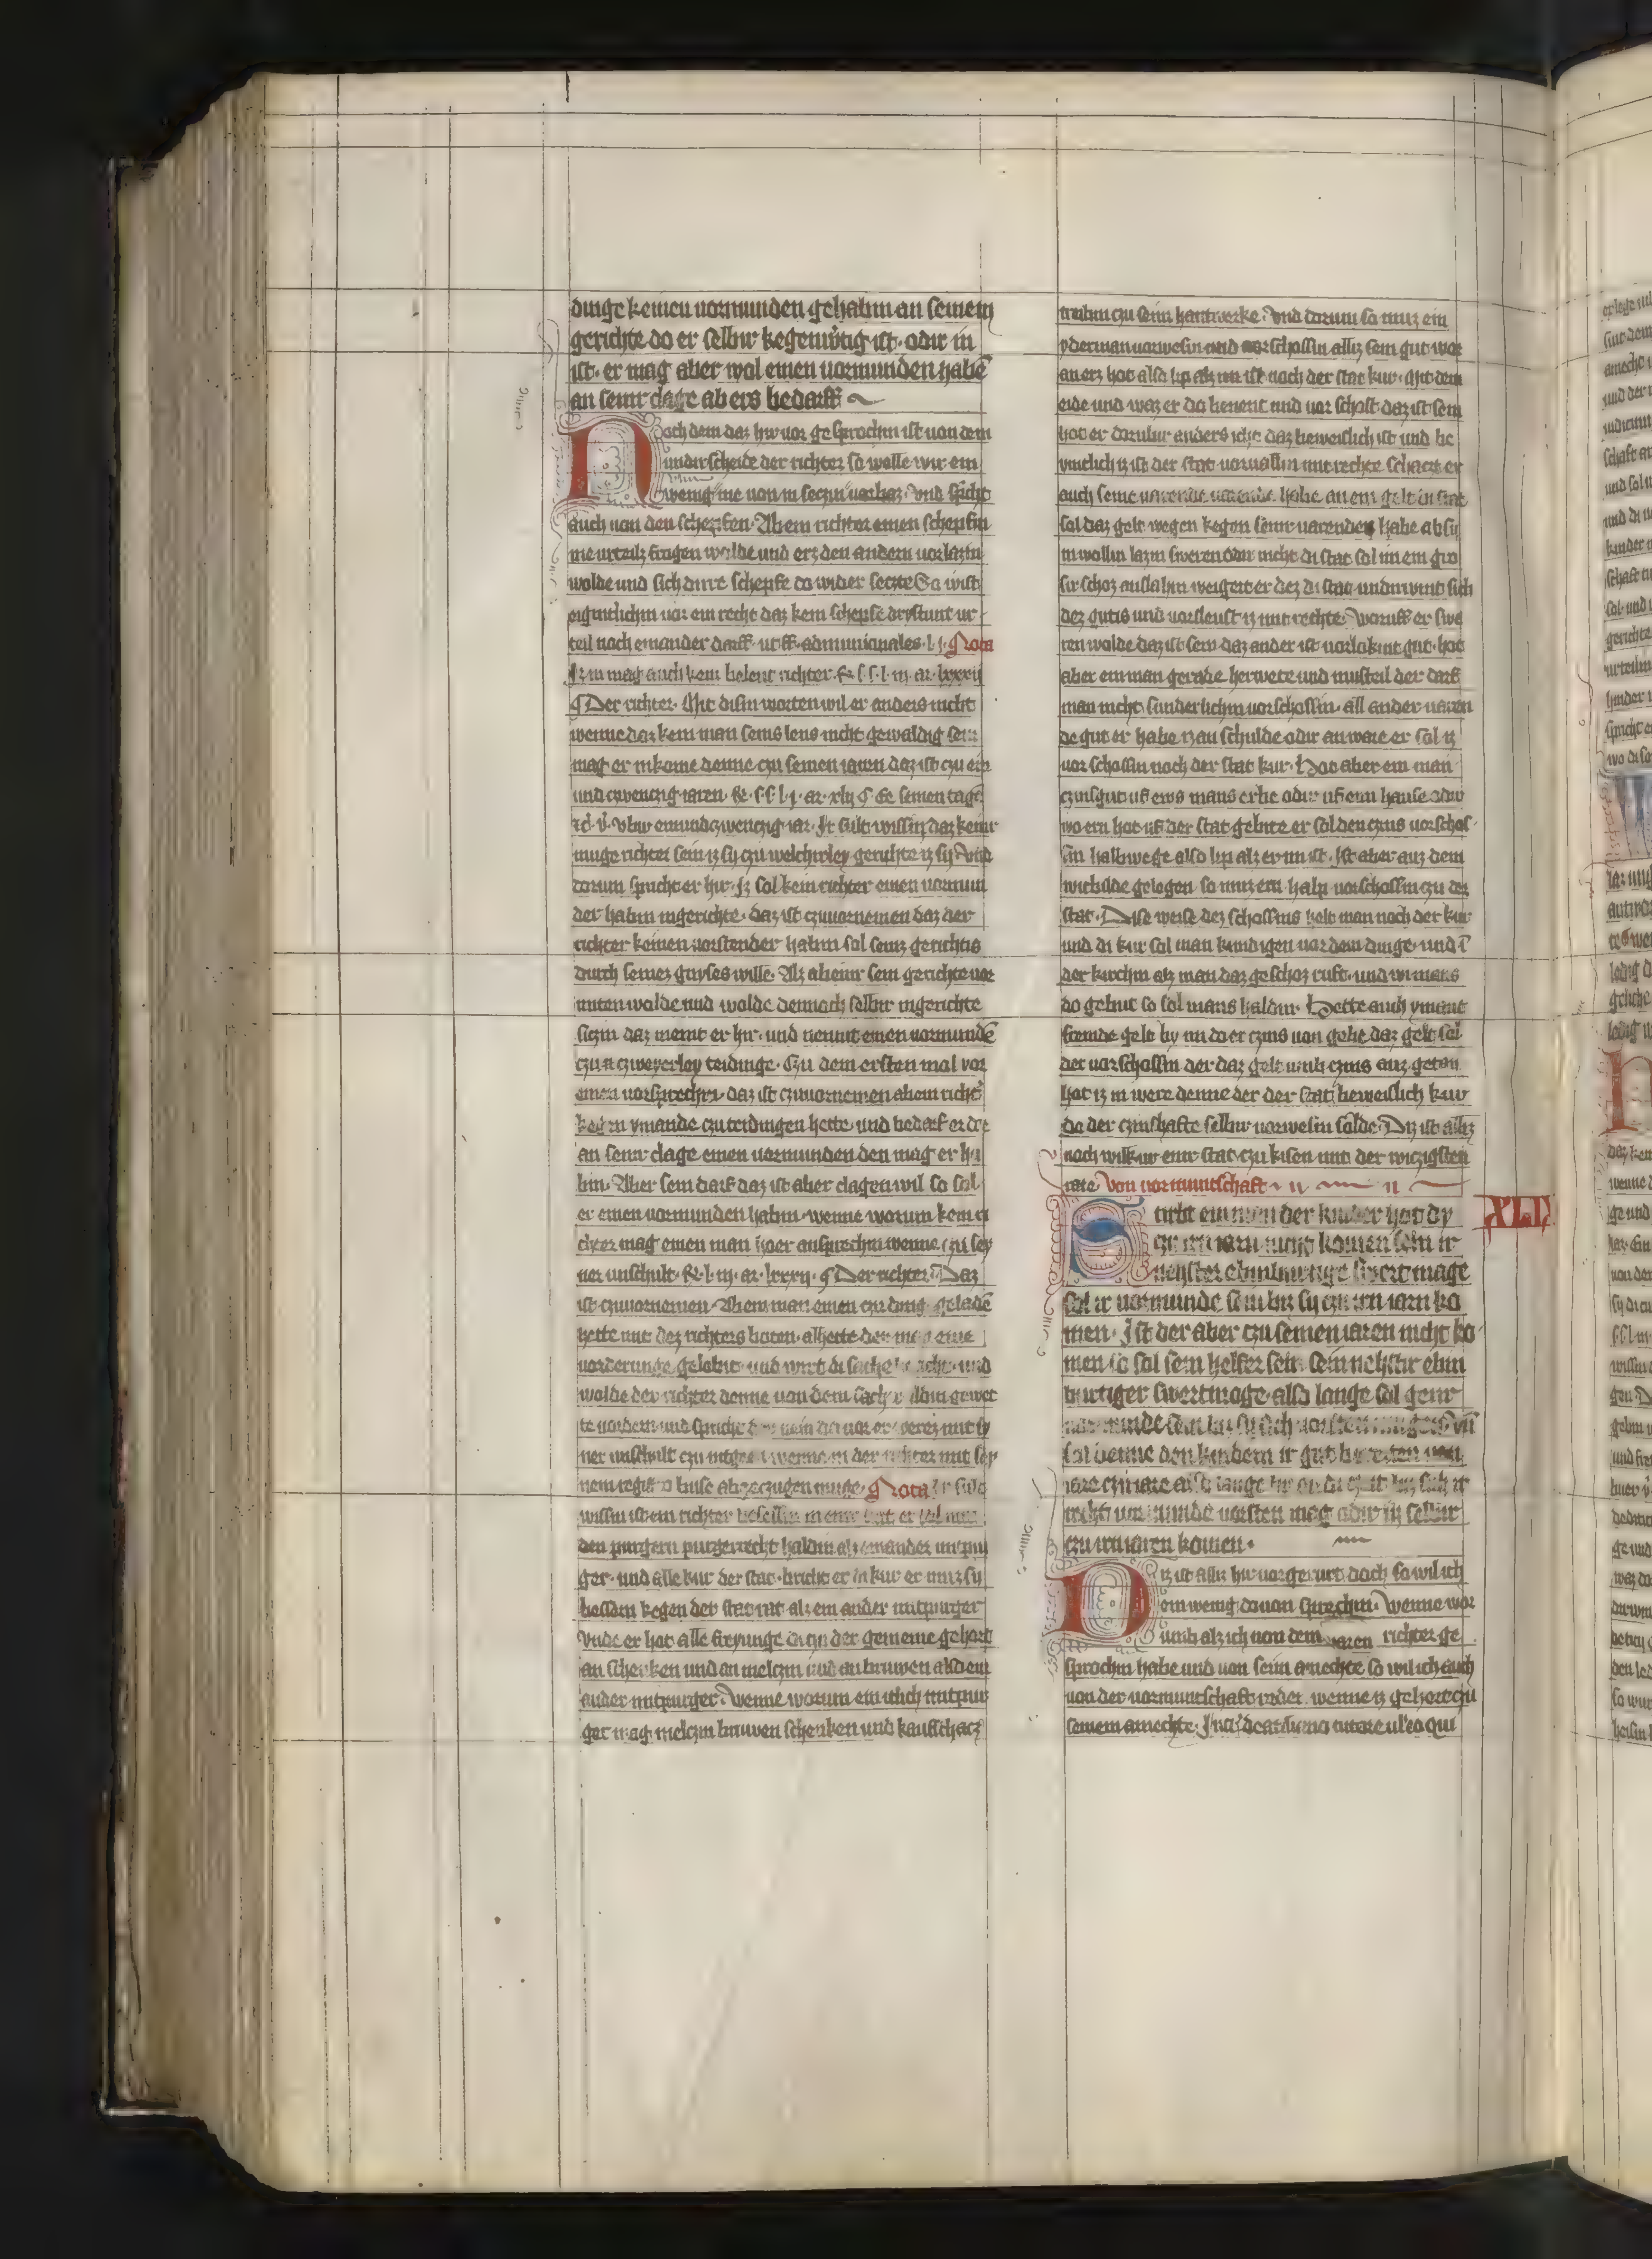 dinge keinen uormunden gehabin an seinem
gerichte do er selbir kegenwᷣtig ist · odir in
ist · er mag aber wol einen uormunden habē
an seinir clage ab ers bedarff
Noch dem daz hir uor gesprochin ist uon dem
undirscheide der richter so welle wir ein
wenig me uon in seczin und spricht
auch uon den schepfen · Ab ein richter einen schepfin
me urteilz fragen wolde und erz den andern uorlazin
wolde und sich dirre schepfe do wider seczte So wist
eigintlichin uor ein recht daz kein schepfe drystunt ur
teil noch enander darff · ut ff · admunicipales · l · j · Nota
Iz in mag auch kein belent richter
Der richter · Mit disin worten wil er anders nicht
wenne daz kein man seins lens nicht gewaldig sein
mag er inkome denne czu seinen iaren daz ist czu ein
und czwenczig iaren · ar · xlij · seinen tage
ubir einundczwenczig iar · Ir sult wissin daz keinir
muge richter sein iz sy czu welchirley gerichte iz sy Und
dorum spricht er hir · Iz sol kein richter einen uormun
der habin ingerichte · daz ist czuuornemen daz der
richter keinen uorstender habin sol seinz gerichtis
durch seinez gnyses wille · Alz ab einir sein gerichte uor
miten wolde und wolde dennoch selbir ingerichte
siczin daz meint er hir · und nennit einen uormundē
czu a czweyerley teidinge · Czu dem ersten mol vor
einen uorsprechin · daz ist czuuornemen ab ein richtᷣ
kegin ymande czu teidingen hette · und bedarf er der
an seinir clage einen uormunden den mag er ha
bin · Aber sein darf daz ist aber clagen wil so sol
er einen uormunden habin · wenne worum kein ri
chter mag einen man hoer ansprechin wenne czu sey
ner unschult · l · iij · ar · lxxxij · Der richter · Daz
ist czuuornemen · Ab ein man einen czu ding geladē
hette mit dez richters boten · ab hette der
uorderunge gelobit · und wirt di sache und
wolde der richter denne uon dem gewet
te uordern und spricht mit sy
ner unschult czu der richter mit sey
nem abirczugen muge · Nota Ir sult
wissin ist ein richter besessin in einir stat er sol mit
den purgern purgerrecht haldin alz ein ander mitpur
ger · und alle kur der stat · bricht er in kur er muz sy
bessern kegen der stat rat alz ein ander mitpurger
Unde er hot alle freyunge di czu der gemeine gehort
an schenken und an melczin und an bruwen alz ein
ander mitpurger · Wenne worum ein itlich mitpur
ger mag melczin bruwen schenken und kaufschacz
triben czu seinir hantwerke · Und dorum so muz ein
yderman uorwesin und uorschossin alliz sein gut wor
an erz hot also lip alz im ist noch der stat kur · Mit dem
eide und waz er do benent und uorschost daz ist sein
hot er dorubir anders icht daz beweislich ist und be
vintlich iz ist der stat uoruallin mit rechte schaczt er
auch seine uarende habe an ein gelt di stat
sol daz gelt wegen kegen seinir uarendes habe ab sy
in wollin lazin sweren odir nicht di stat sol im ein gro
sir schoz auflahin weigert er dez di stat undirwint sich
dez gutis und uorsleust iz mit rechte Woruff er swe
ren wolde daz ist sein daz ander ist uorlokint gut · hot
aber ein man gerade herwete und musteil der darf
man nicht sunderlichin uorschossin · all ander uaren
de gut er habe iz an schulde odir an ware er sol iz
uor schossin noch der stat kur · Hot aber ein man
czinsgut uf eins mans erbe odir uf eim hause odir
wo erz hot uf der stat gebite er sol den czins uorschos
sin halbwege also lip alz er im ist · Ist aber auz dem
wicbilde gelegen so muz erz halp uorschossin czu der
stat · Dise weise dez schossins helt man noch der kur
und di kur sol man kundigen uor dem dinge · und ī
der kirchin alz man daz geschoz ruft · und wi mans
do gebut so sol mans haldin · Hette auch ymant
fremde gelt by im do er czins uon gebe daz gelt sol
der uorschossin der daz gelt umb czins auz getan
hot iz in were denne der der stat beweislich kur
do der czinshafte selbir uorwesin solde · Diz ist alliz
noch wilkur einir stat czu kisen und der wiczigsten
rate · Von uormuntschaft
XLI
Stirbt ein man der kinder hot dy
czu irn iarn nicht komen sein ir
nehster ebinburtige swert mage
sol ir uormunde sein biz sy czu irn iarn ko
men · Ist der aber czu seinen iaren nicht ko
men so sol sein helfer sein · sein nehstir ebin
burtiger swertmoge · also lange sol yenir
uormunde sein
sol denne den kindern ir gut berechen uon
iare czu iare also lange
recht uormunde uorsten mag odir sy selbir
czu irn iaren komen ·
Diz ist alliz hir uor gerurt doch so wil ich
ein wenig douon sprechin · Wenne wor
umb alz ich uon dem waren richter ge
sprochin habe und uon seim amechte so wil ich auch
uon der uormuntschaft reden · wenne iz gehort czu
seinem amechte ·